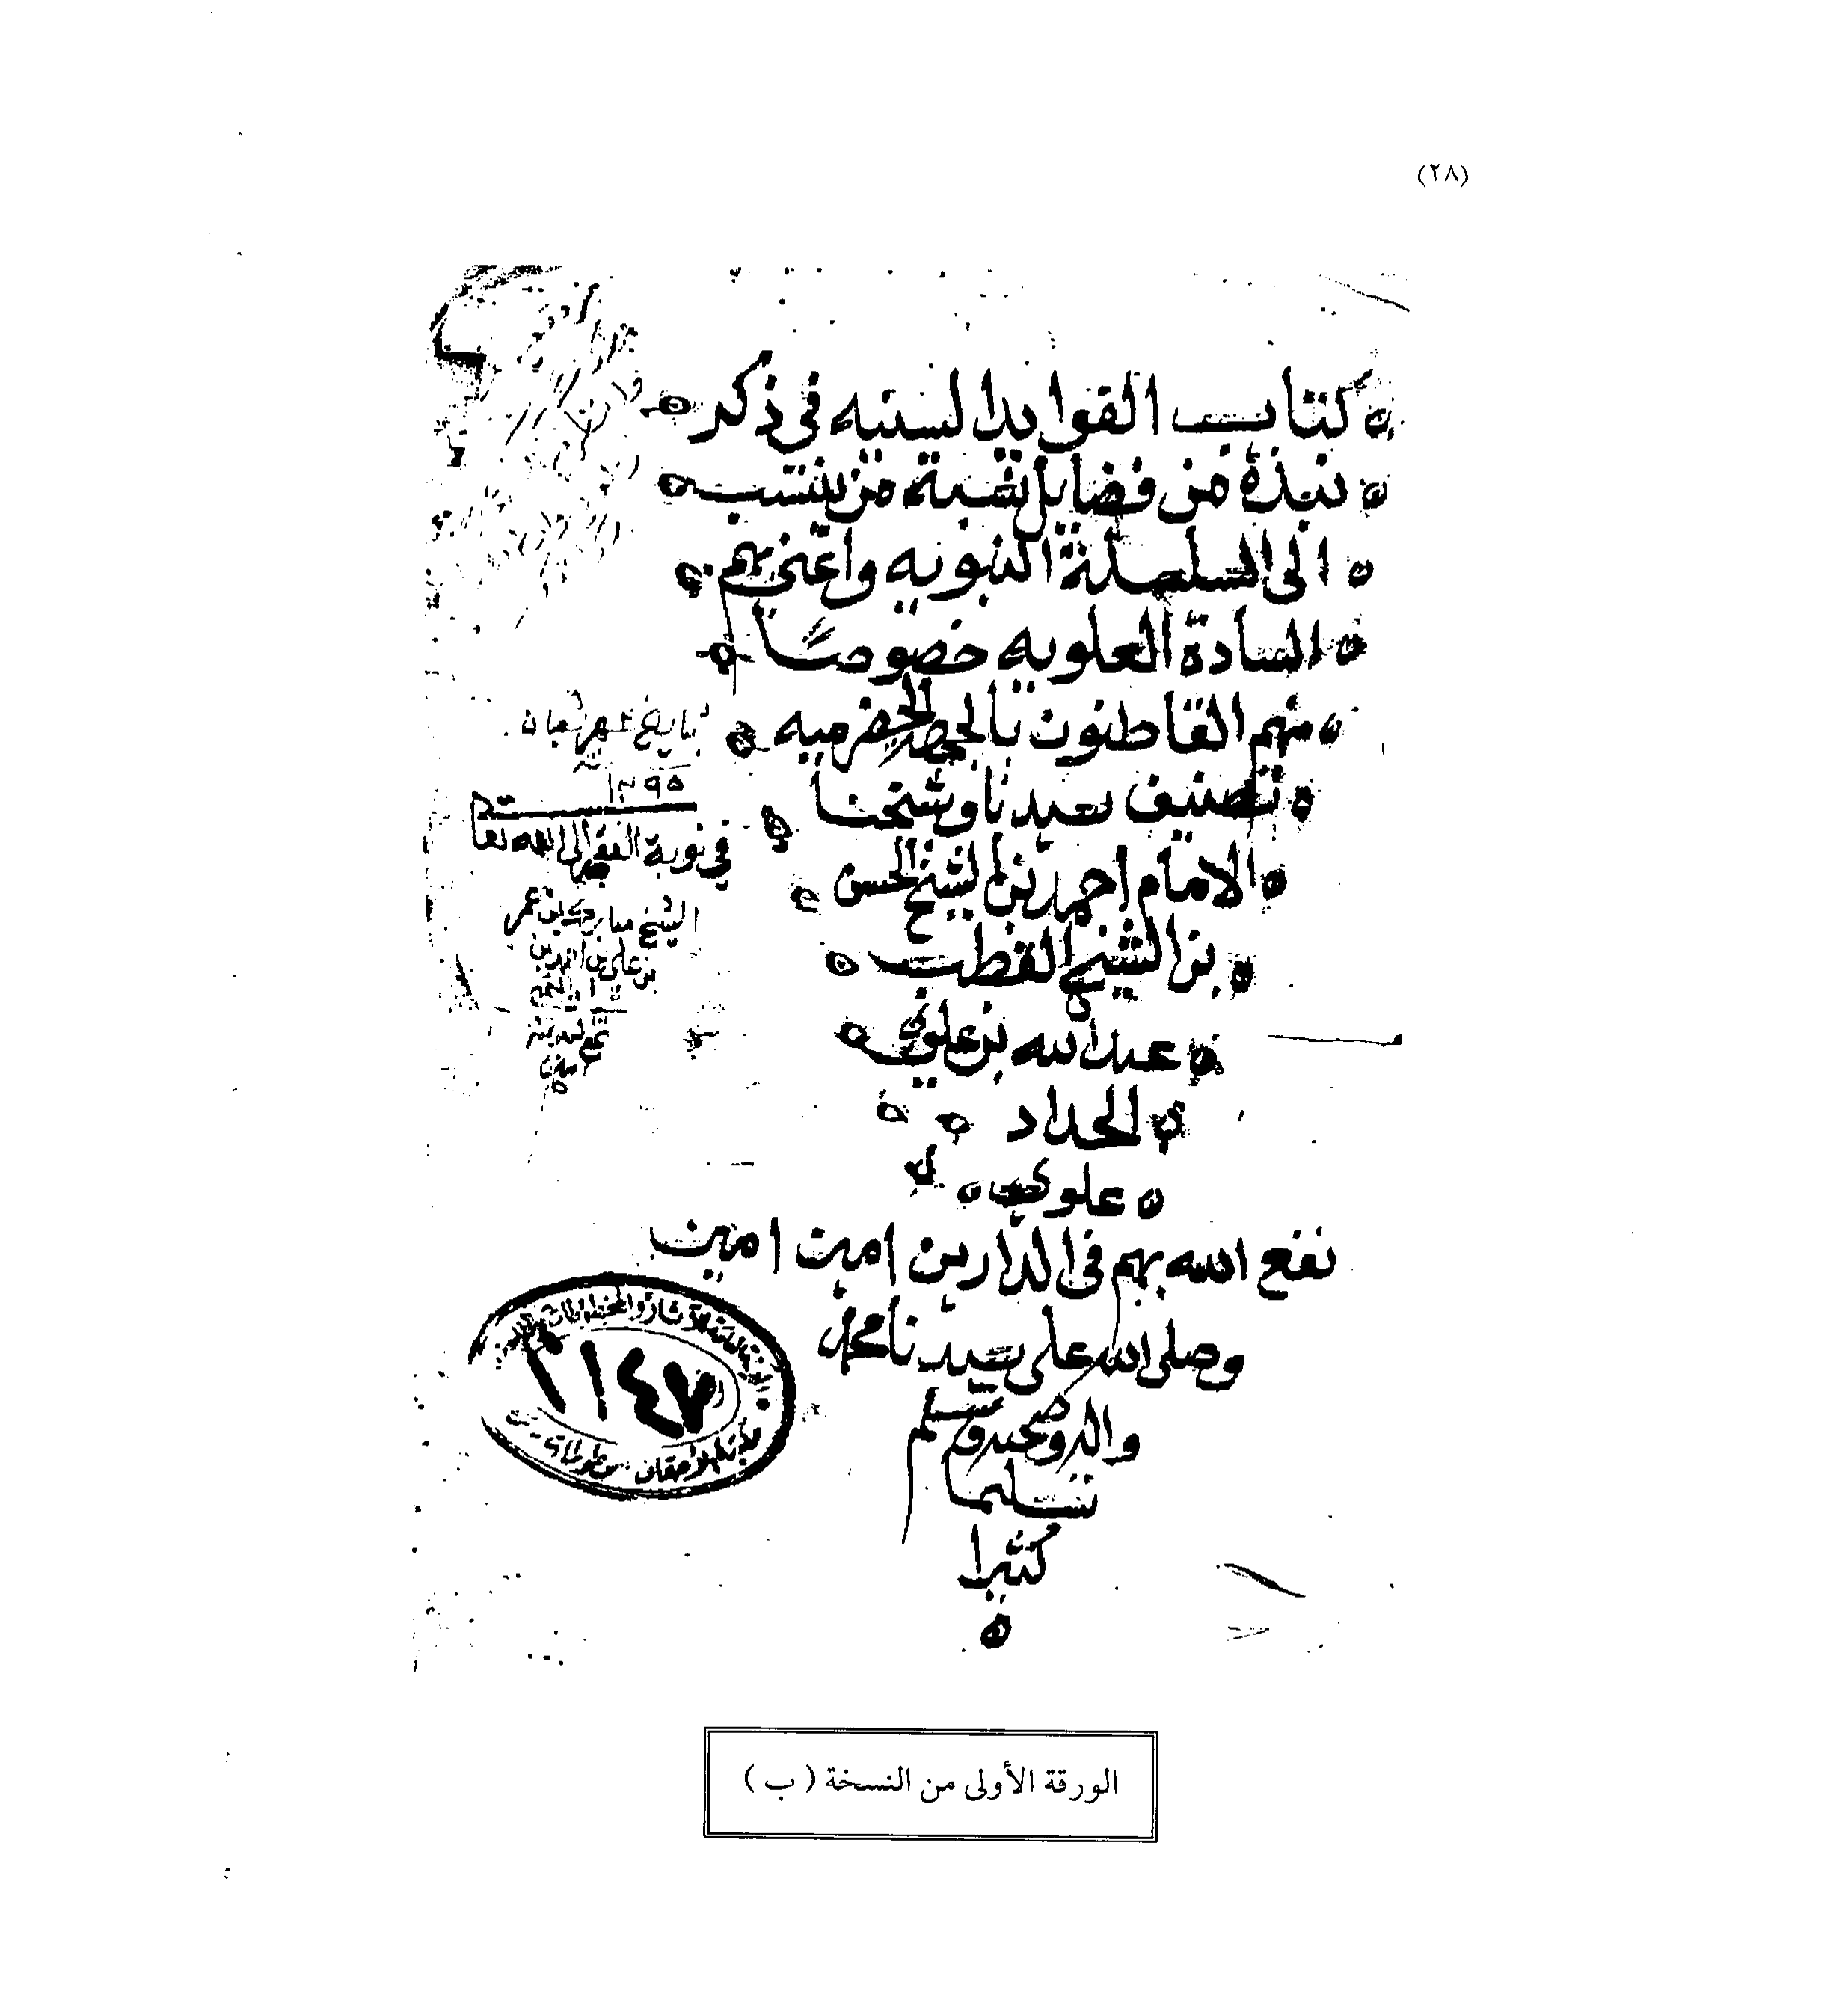 (٢٨)
كتاب الفوايد السنيه في ذكر
نبذة من فضايل نسبة من ينتسب
الى السلسلة النبويه واعني بهم
السادة العلويه خصوصًا
منهم القاطنون بالجهه الحضرميه
تصنيف سيدنا وشيخنا
الامام احمد بن الشيخ الحسن
بن الشيخ القطب
عبدالله بن علوي
الحداد
علوي
نفع الله بهم في الدارين امين امين
وصلى الله على سيدنا محمد
واله وصحبه وسلم
تسليما
كثيرا
بتاريخ شهر شعبان
١٢٩٥ سنة
في نوبة الفقير الى الله تعا
الشيخ مبارك بن عمر
بن علي بن احمد بن
١١٤٧
الورقة الأولى من النسخة ( ب )